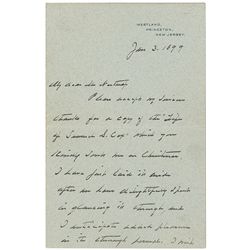 WESTLAND,
PRINCETON,
NEW JERSEY.
Jan 3. 1899
My dear Mr
Please accept my sincere
thanks for a copy of the Life
of Samuel S. Cox which you
kindly sent me on Christmas
I have just laid it aside
after an hour delightfully spent
in glancing it through and
I anticipate much pleasure
in its thorough perusal. I